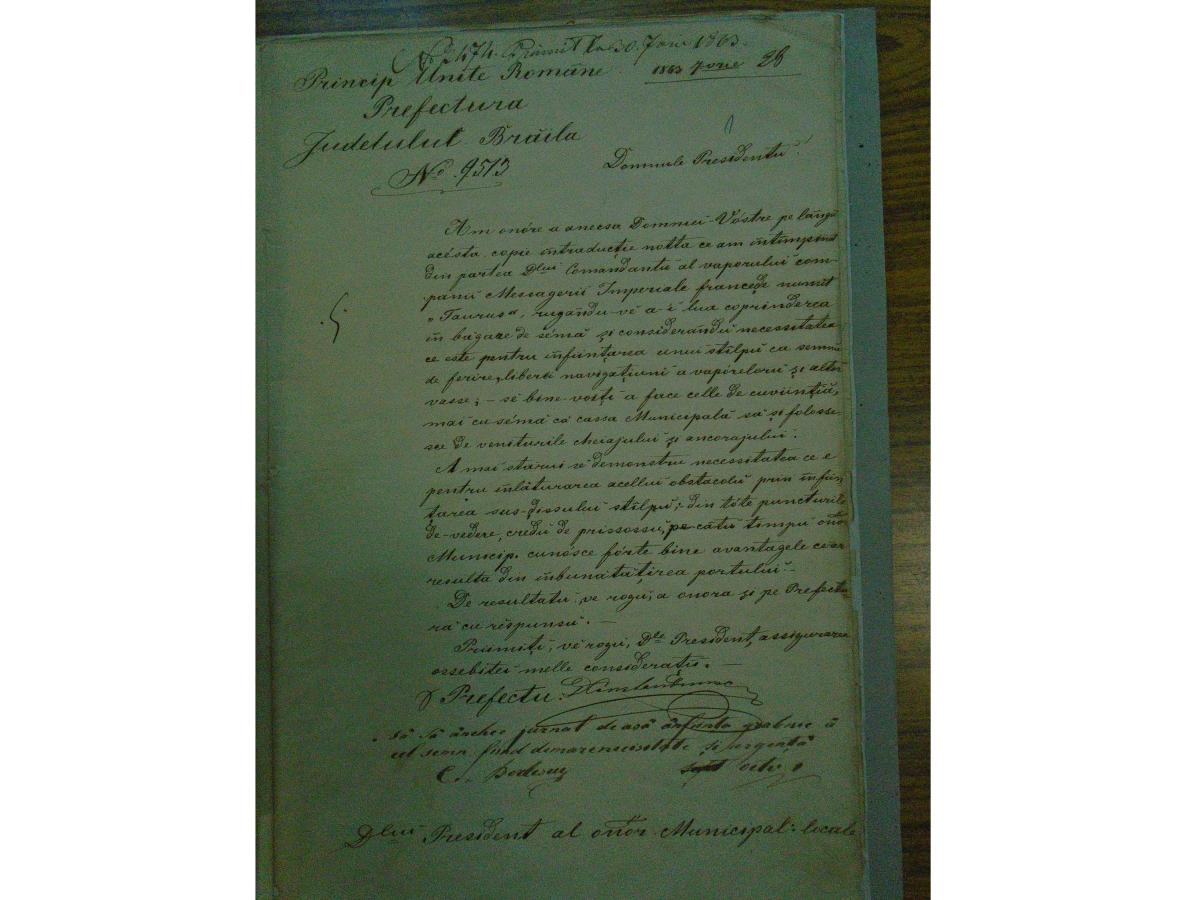 No 2474. Primit la 30. Iunie 1863.
Princip Unite Române 1863 Iunie 28
Prefectura
Judetului Brăila
No 9513
Domnule Presidentu!
Am onóre a anecsa Domniei-Vóstre pe lângă
acésta copie in traducție notta ce am întimpinat
din partea Dlui Comandantu al vaporului com-
panii Messagerii Imperiale francede numit
„Taurus", rugându-vĕ a-ĭ lua coprinderea
in bagare de sémă și considerându necessitatea
ce este pentru inființarea unui stîlpu ca semnu
de ferire, liberei navigațiuni a vapórelorŭ și altor
vasse; – sĕ bine-voiți a face celle de cuviință,
mai cu sémă că cassa Municipală să și folosse-
sce de veniturile cheiajului și ancorajului.
A mai starui sĕ demonstru necessitatea ce e
pentru înlăturarea acellui obstacolŭ prin infiin
țarea sus-dissului stîlpu; din tóte puncturile
de-vedere, credŭ de prissossu, pe câtu timpu onor
Municip. cunósce fórte bine avantagele ce ar
resulta din inbunatațirea portului. –
De resultatu, ve rogu, a onora și pe Prefectu-
ra cu rĕspunsu. –
Priimiți, vĕ rogu, Dle President, assigurarea
ossebitei melle considerații. –
p Prefectu:
Să să închee jurnal de a să înființa grabnic
cel semn fiind de mare necesitate și urgență
Dlui President al onor. Municipal: locale